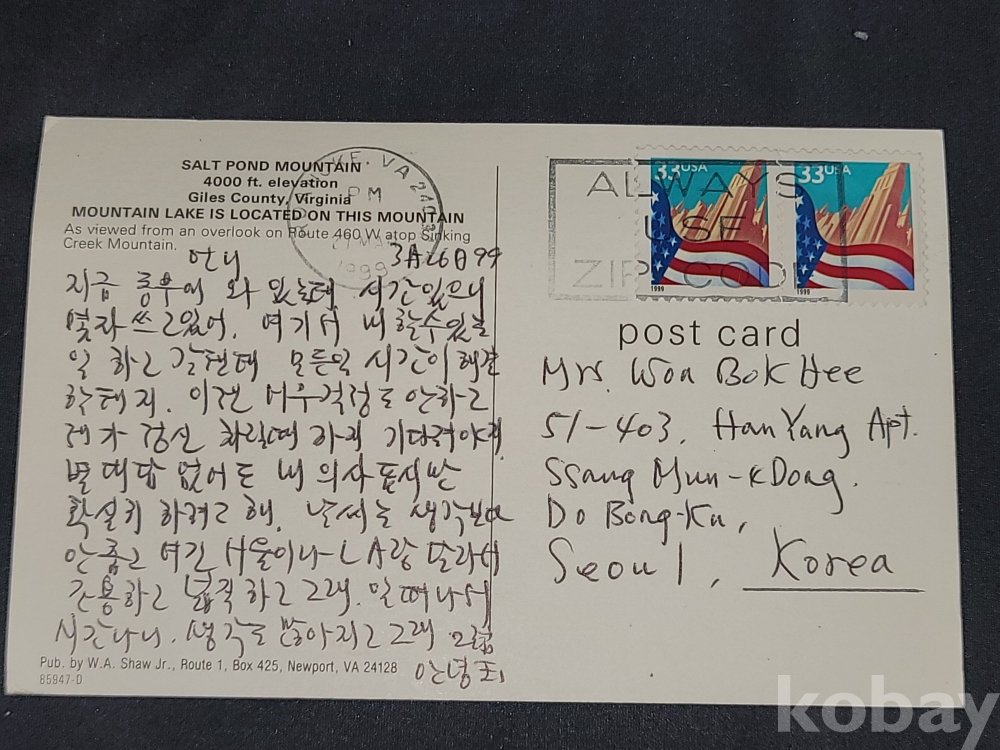 SALT POND MOUNTAIN
4000 ft. elevation
Giles County, Virginia
MOUNTAIN LAKE IS LOCATED ON THIS MOUNTAIN
As viewed from an overlook on Route 460 W. atop Sinking
Creek Mountain.
VA
PM
1999
33USA
33USA
1999
1999
ALWAYS
USE
ZIP CODE
언니
3월26일99
지금 동부에 와 있는데, 시간있으니
몇자 쓰고있어. 여기서 내 할수있는
일 하고 갈텐데 모든일 시간이 해결
할테지. 이젠 너무 걱정도 안하고
제가 정신 차릴때 까지 기다려야지
별 대답 없어도 내 의사 표시만
확실히 하려고 해. 날씨는 생각보다
안춥고 여긴 서울이나 LA랑 달라서
조용하고 널찍하고 그래. 일 떠나서
시간나니, 생각도 많아지고 그래 그럼
안녕히
post card
Mrs. Won Bok Hee
51-403, HanYang Apt.
SSang Mun-Dong.
Do Bong-Ku,
Seoul, Korea
Pub. by W.A. Shaw Jr., Route 1, Box 425, Newport, VA 24128
85947-D
kobay